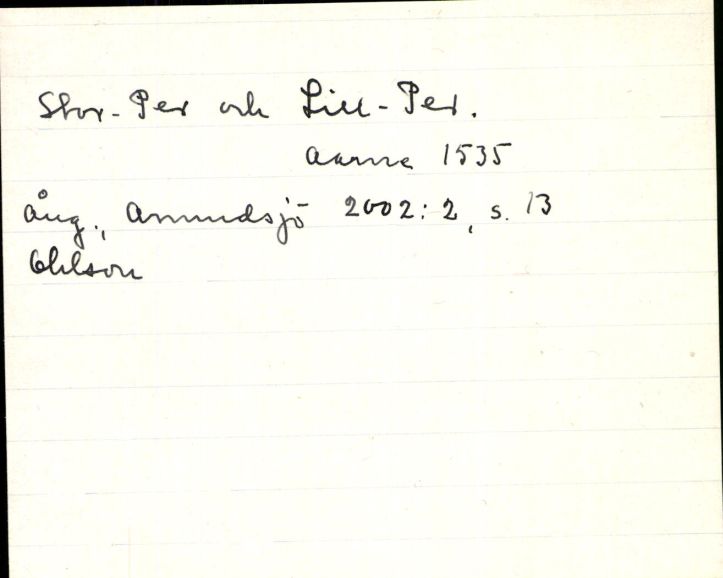 Stor-Per och Lill-Per.
Aarne 1535
Ång., Anundsjö 2002:2, s. 13
Ohlson